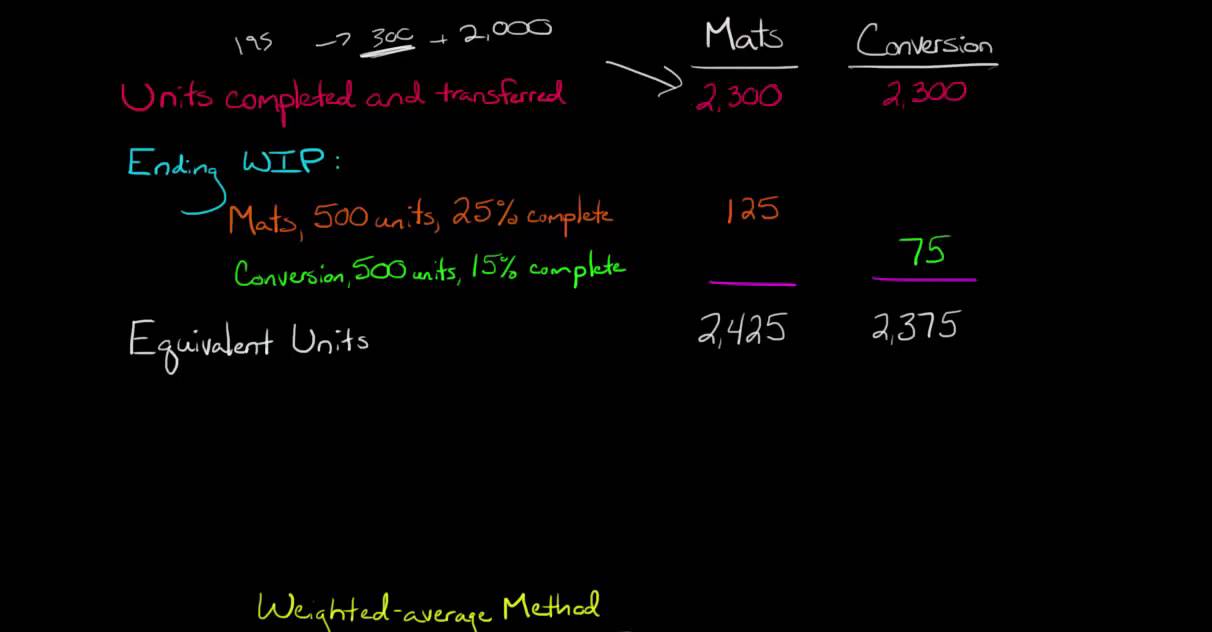 195 → 300 + 2,000
Mats Conversion
Units completed and transferred 2,300 2,300
Ending WIP:
Mats, 500 units, 25% complete 125
Conversion, 500 units, 15% complete 75
Equivalent Units 2,425 2,375
Weighted-average Method